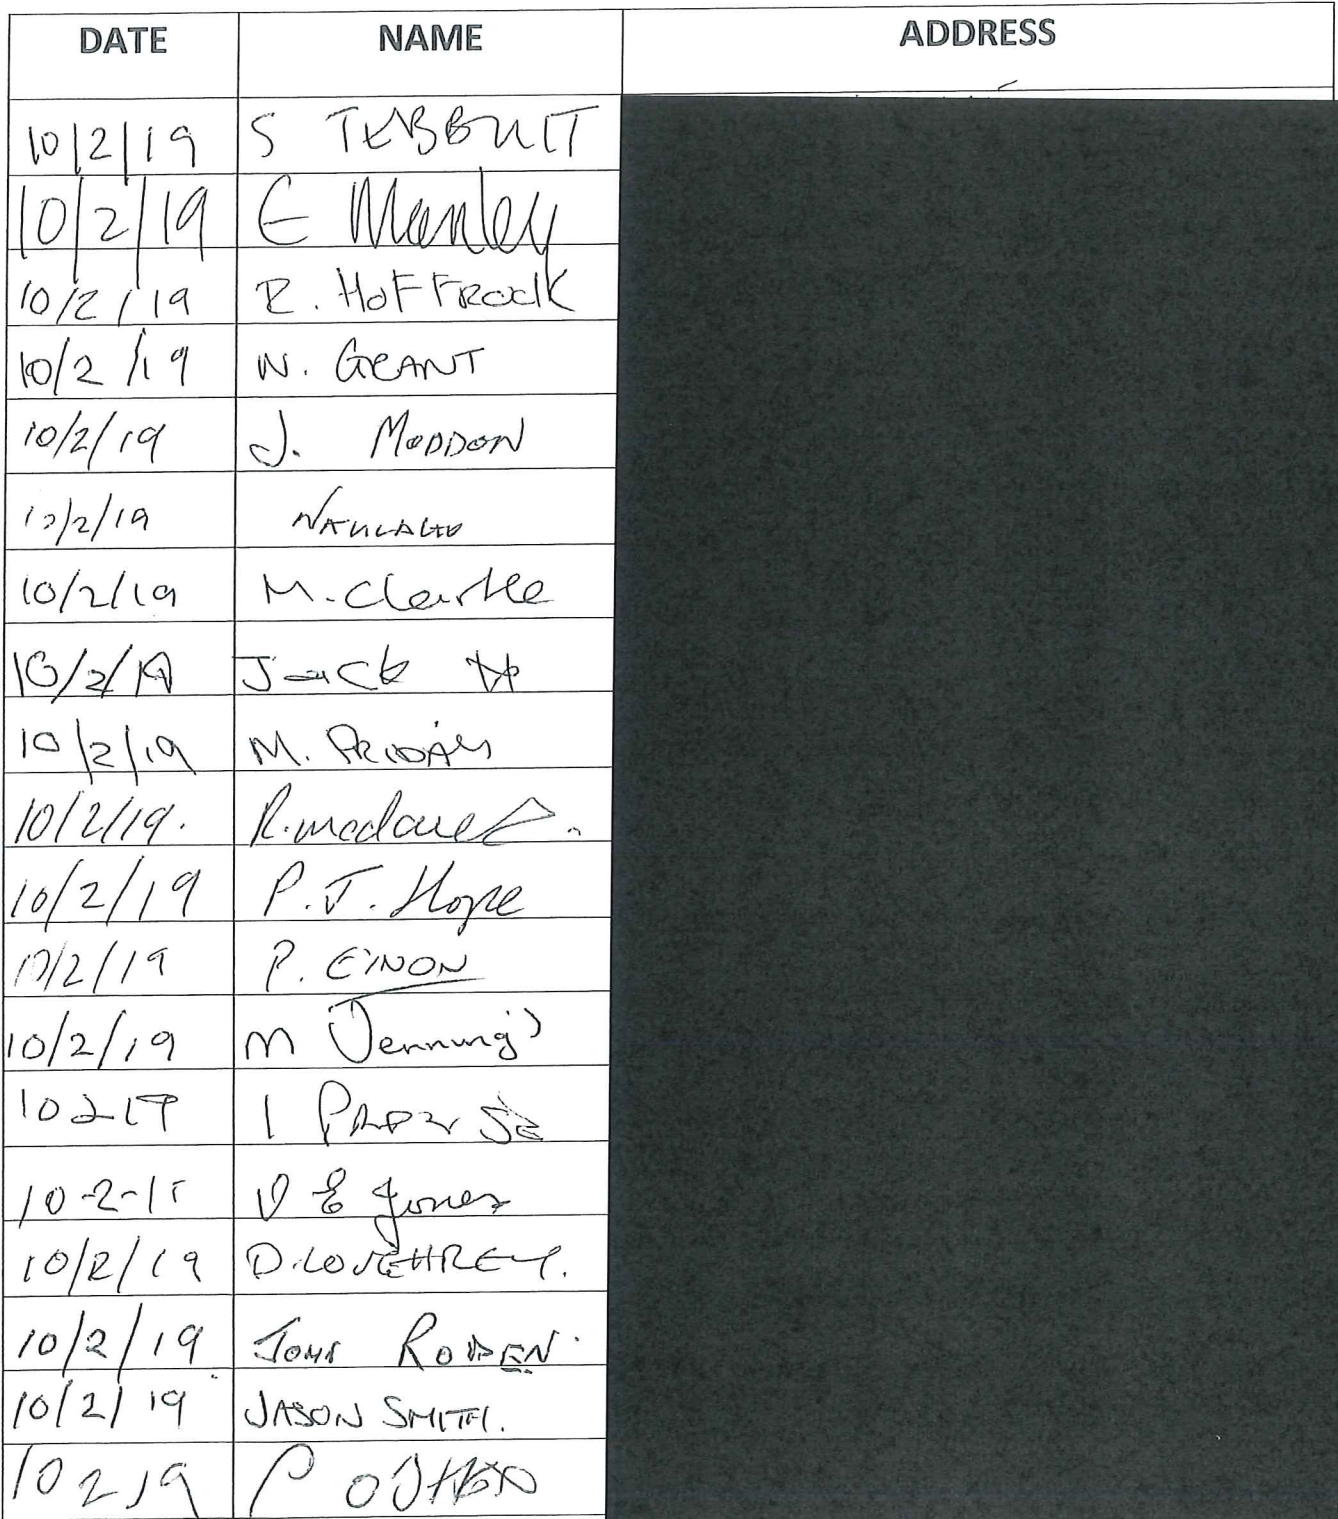 DATE NAME ADDRESS
10/2/19 S TEBBUTT
10/2/19 E Manley
10/2/19 R. HOFFROCK
10/2/19 N. GRANT
10/2/19 J. MODDON
10/2/19
10/2/19 M. Clarke
10/2/19 Jack
10/2/19 M. PRIDAY
10/2/19.
10/2/19 P.J. Hope
10/2/19 P. EINON
10/2/19 M Jennings
10 2 19 I
10-2-19 V E Jones
10/2/19 D.
10/2/19 JOHN RODEN.
10/2/19 JASON SMITH.
10 2 19 P